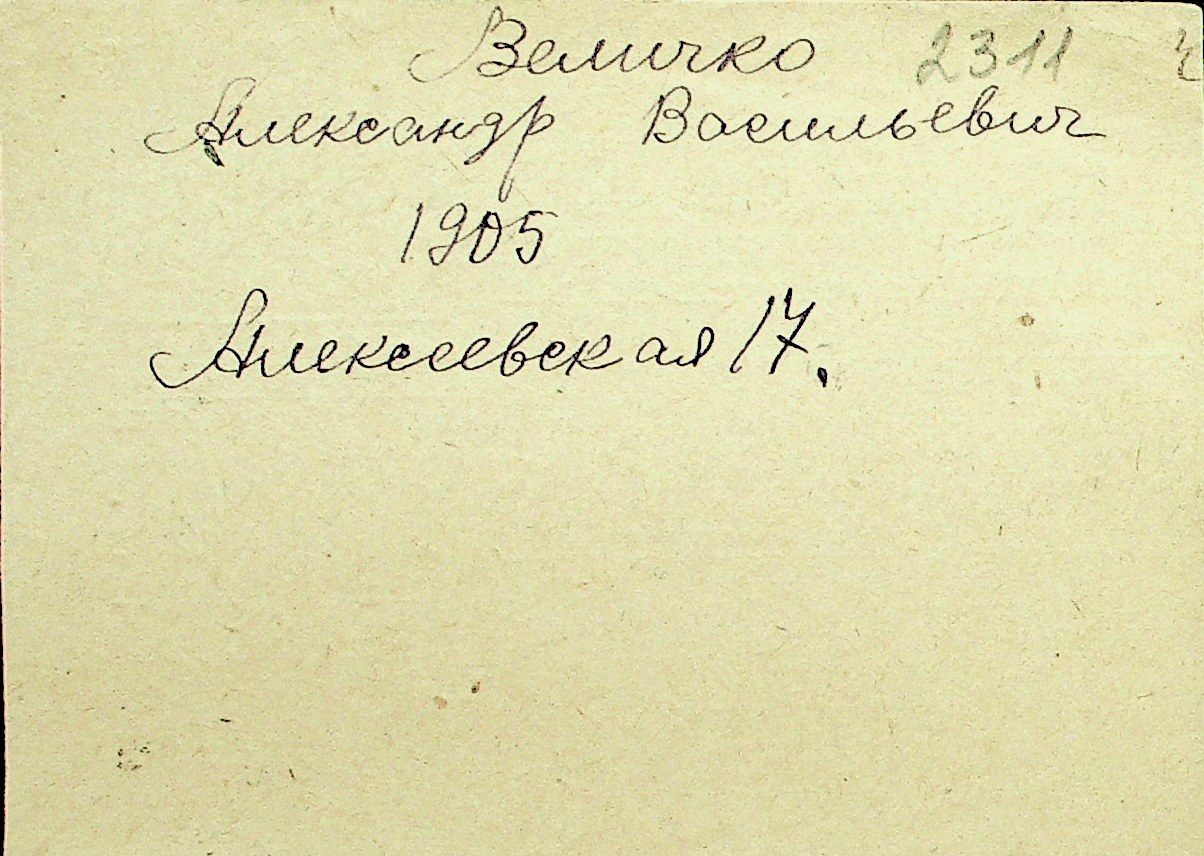 Величко 2311
Александр Васильевич
1905
Алексеевская 17.